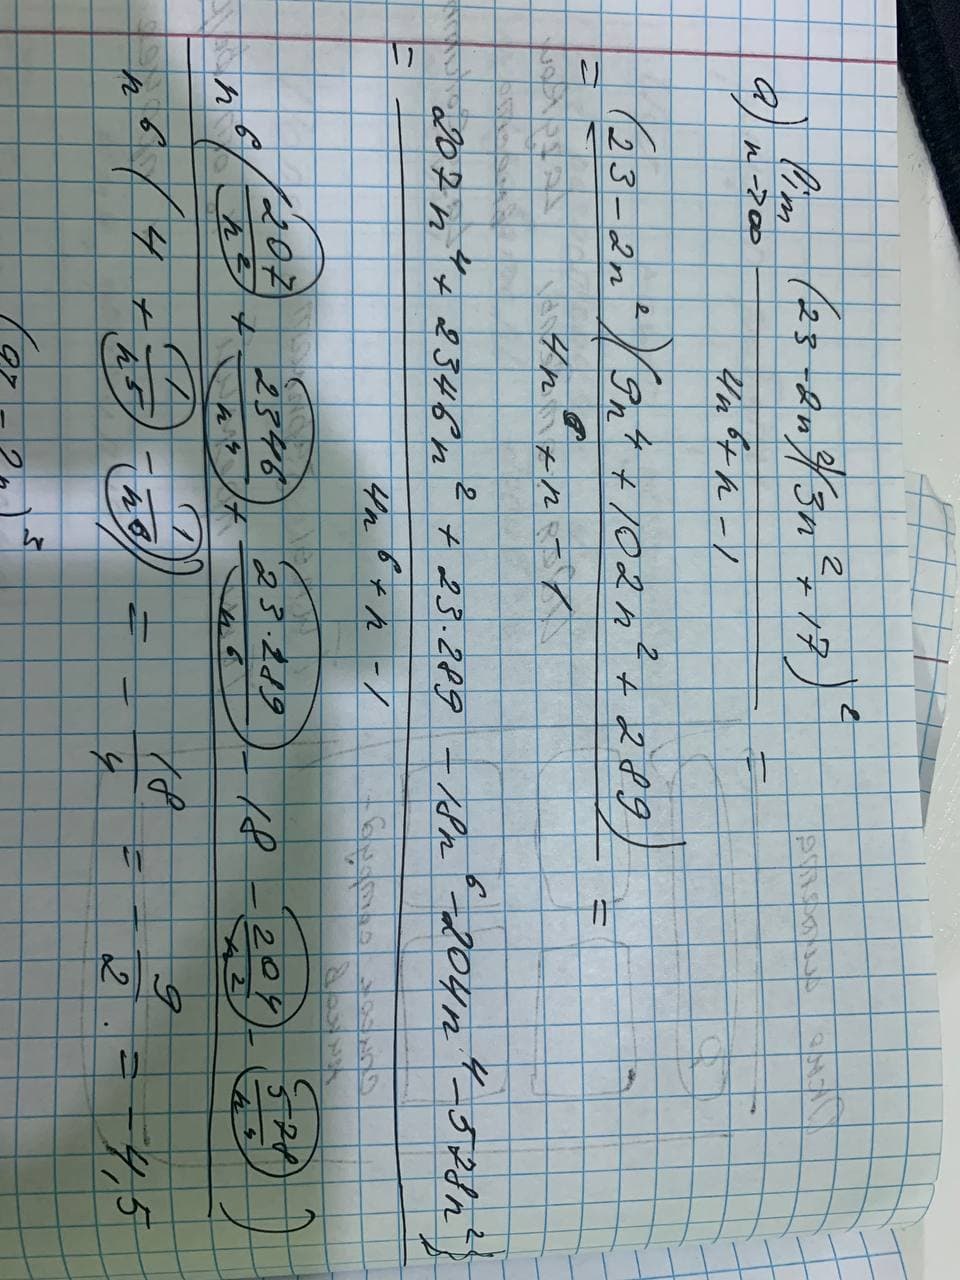 а) lim n→∞ (23-2n²)(3n²+17)² / 4n⁶+n-1 =
= (23-2n²)(9n⁴+102n²+289) / 4n⁶+n-1 =
= 207n⁴+2346n²+23·289-18n⁶-204n⁴-578n² / 4n⁶+n-1
n⁶(207/n²+2346/n⁴+23·289/n⁶-18-204/n²-578/n⁴)
n⁶(4+1/n⁵-1/n⁶) = -18/4 = -9/2. = -4,5